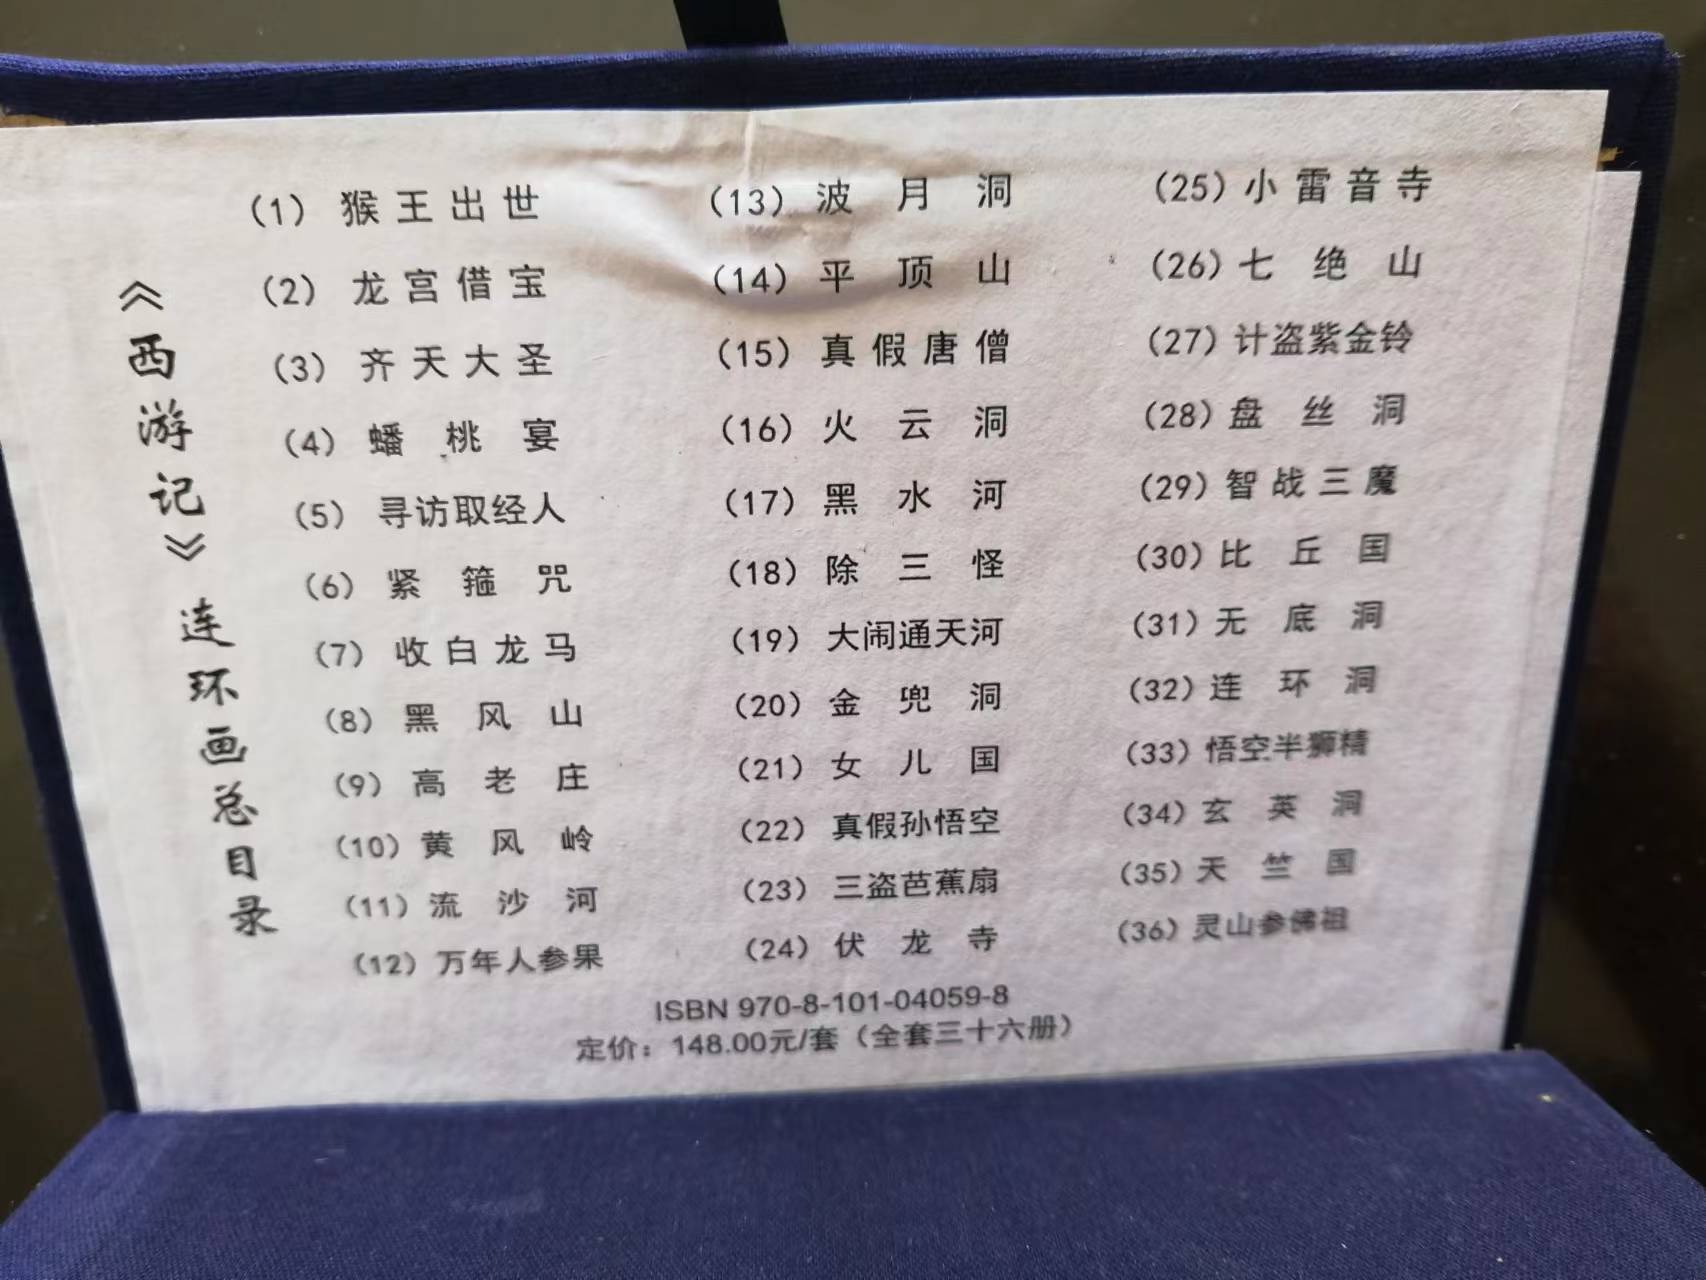 《西游记》连环画总目录
(1) 猴王出世
(2) 龙宫借宝
(3) 齐天大圣
(4) 蟠桃宴
(5) 寻访取经人
(6) 紧箍咒
(7) 收白龙马
(8) 黑风山
(9) 高老庄
(10) 黄风岭
(11) 流沙河
(12) 万年人参果
(13) 波月洞
(14) 平顶山
(15) 真假唐僧
(16) 火云洞
(17) 黑水河
(18) 除三怪
(19) 大闹通天河
(20) 金兜洞
(21) 女儿国
(22) 真假孙悟空
(23) 三盗芭蕉扇
(24) 伏龙寺
(25) 小雷音寺
(26) 七绝山
(27) 计盗紫金铃
(28) 盘丝洞
(29) 智战三魔
(30) 比丘国
(31) 无底洞
(32) 连环洞
(33) 悟空半狮精
(34) 玄英洞
(35) 天竺国
(36) 灵山参佛祖
ISBN 970-8-101-04059-8
定价：148.00元/套（全套三十六册）